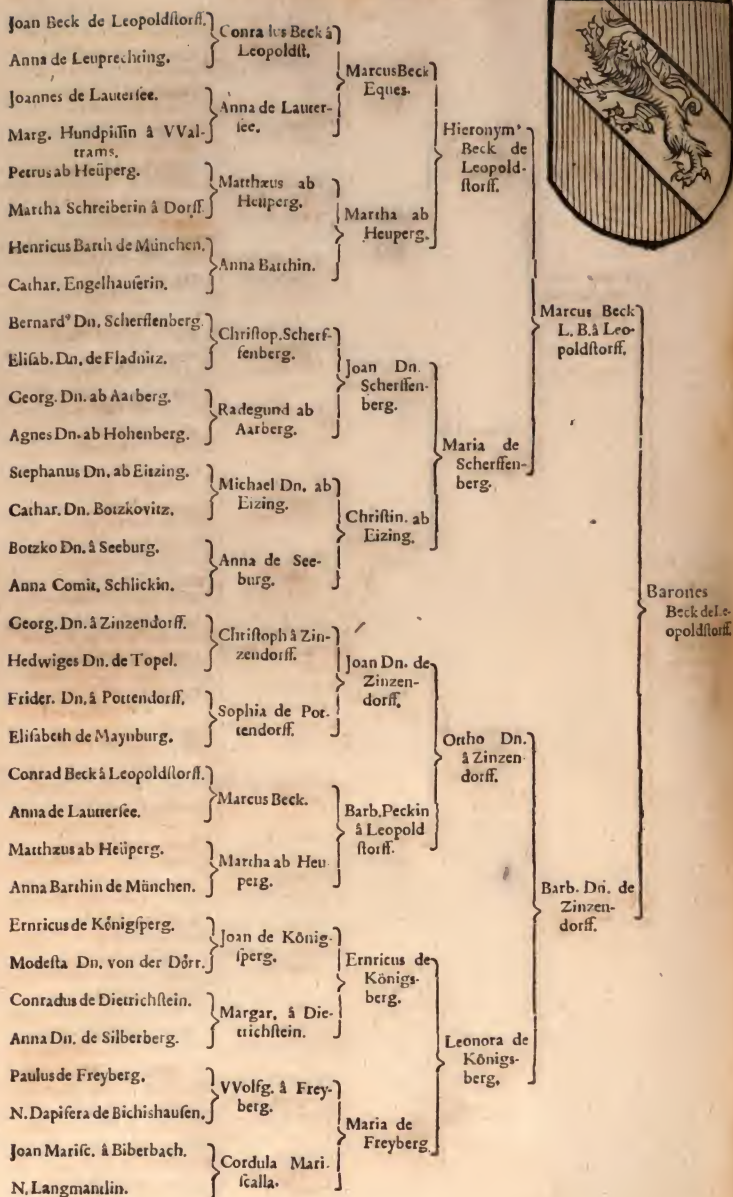 Joan Beck de Leopoldſtorff.
Anna de Leuprechting.
Joannes de Lauterſee.
Marg. Hundpiſſin â VVal-
trams.
Petrus ab Heüperg.
Martha Schreiberin â Dorff.
Henricus Barth de München.
Cathar. Engelhauſerin.
Bernard⁹ Dn. Scherffenberg.
Eliſab. Dn. de Fladnitz.
Georg. Dn. ab Aarberg.
Agnes Dn. ab Hohenberg.
Stephanus Dn. ab Eitzing.
Cathar. Dn. Botzkovitz.
Botzko Dn. â Seeburg.
Anna Comit. Schlickin.
Georg. Dn. â Zinzendorff.
Hedwiges Dn. de Topel.
Frider. Dn. â Pottendorff.
Eliſabeth de Maynburg.
Conrad Beck â Leopoldſtorff.
Anna de Lautterſee.
Matthæus ab Heüperg.
Anna Barthin de München.
Ernricus de Königſperg.
Modeſta Dn. von der Dörr.
Conradus de Dietrichſtein.
Anna Dn. de Silberberg.
Paulus de Freyberg.
N. Dapifera de Bichishauſen.
Joan Mariſc. â Biberbach.
N. Langmantlin.
Conra lus Beck â
Leopoldſt.
Anna de Lauter-
ſee.
Matthæus ab
Heuperg.
Anna Barthin.
Chriſtop. Scherf-
fenberg.
Radegund ab
Aarberg.
Michael Dn. ab
Eizing.
Anna de See-
burg.
Chriſtoph â Zin-
zendorff.
Sophia de Pot-
tendorff.
Marcus Beck.
Martha ab Heu
perg.
Joan de König-
ſperg.
Margar. â Die-
trichſtein.
VVolfg. â Frey-
berg.
Cordula Mari-
ſcalla.
Marcus Beck
Eques.
Martha ab
Heuperg.
Joan Dn.
Scherffen-
berg.
Chriſtin. ab
Eizing.
Joan Dn. de
Zinzen-
dorff.
Barb. Peckin
â Leopold
ſtorff.
Ernricus de
Königs-
berg.
Maria de
Freyberg.
Hieronym⁹
Beck de
Leopold-
ſtorff.
Maria de
Scherffen-
berg.
Ottho Dn.
â Zinzen
dorff.
Leonora de
Königs-
berg.
Marcus Beck
L. B. â Leo-
poldſtorff.
Barb. Dn. de
Zinzen-
dorff.
Barones
Beck de Le-
opoldſtorff